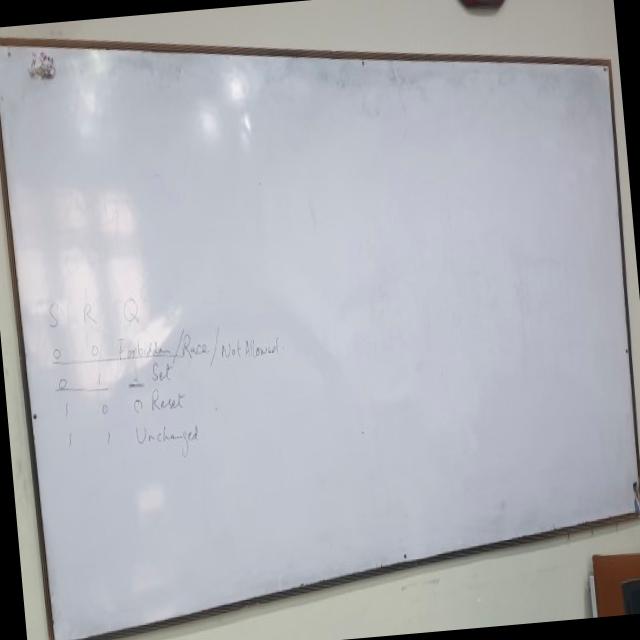 S R Q
0 0 Forbidden/Race/Not Allowed
0 1 1 Set
1 0 0 Reset
1 1 Unchanged